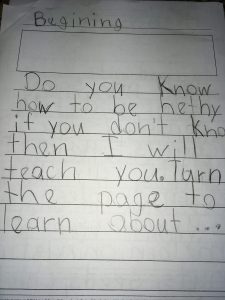 Begining
Do you Know
how to be hethy
if you don't Kno
then I will
teach you. Turn
the page to
learn about ...